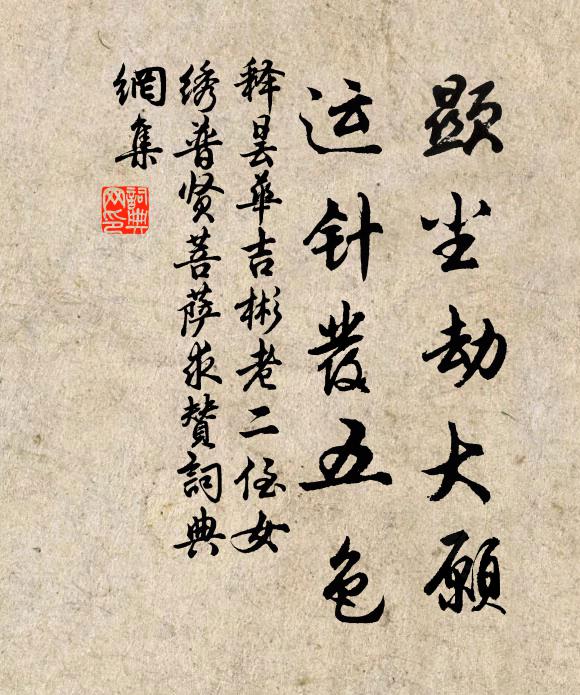 显尘劫大愿
运针发五色
释昙华吉彬老二侄女
绣普贤菩萨求赞词典
网集
詞典
网印